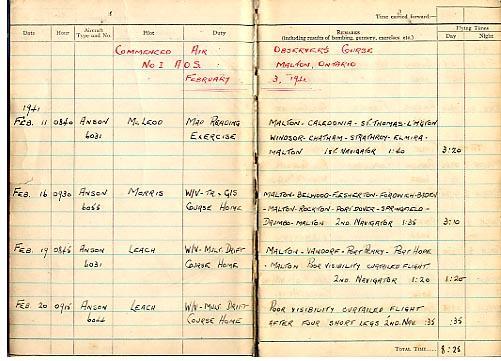 Time carried forward:—
Date Hour Aircraft Type and No. Pilot Duty
REMARKS (Including results of bombing, gunnery, exercises, etc.)
Flying Times
Day Night
COMMENCED AIR OBSERVER'S COURSE
No 1 A.O.S. MALTON, ONTARIO
FEBRUARY 3, 1941
1941
FEB. 11 0840 ANSON McLEOD MAP READING MALTON - CALEDONIA - ST. THOMAS -
6031 EXERCISE WINDSOR - CHATHAM - STRATHROY - ELMIRA -
MALTON 1ST NAVIGATOR 1:40 3:20
FEB. 16 0930 ANSON MORRIS W/V - TR - G/S MALTON - BELWOOD - FLESHERTON - FORDWICH -
6066 COURSE HOME - MALTON - ROCKTON - PORT DOVER - SPRINGFIELD -
DRUMBO - MALTON 2ND. NAVIGATOR 1:35 3:10
FEB. 19 0845 ANSON LEACH W/V - MULT. DRIFT MALTON - VANDORF - PORT PERRY - PORT HOPE
6031 COURSE HOME - MALTON POOR VISIBILITY CURTAILED FLIGHT
2ND. NAVIGATOR 1:20 1:20
FEB. 20 0915 ANSON LEACH W/V - MULT. DRIFT POOR VISIBILITY CURTAILED FLIGHT
COURSE HOME AFTER FOUR SHORT LEGS 2ND. NAV. :35 :35
TOTAL TIME.... 8:25